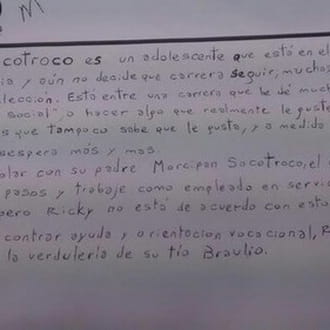 M
cotroco es un adolescente que está en el
ia y aún no decide que carrera seguir, muchas
lección. Está entre una carrera que le dé much
social", o hacer algo que realmente le guste
s que tampoco sabe que le gusta, y a medida
sespera más y mas.
olar con su padre Marcipan Socotroco, el
pasos y trabaje como empleado en servic
pero Ricky no está de acuerdo con esto
contrar ayuda y orientacion vocacional, R
la verdulería de su tío Braulio.